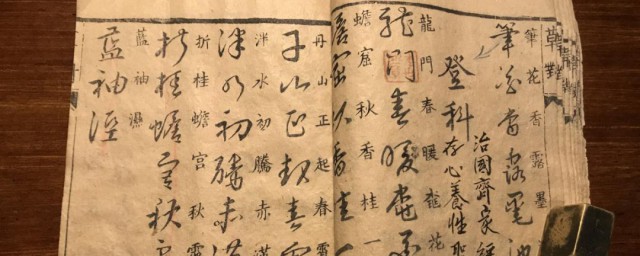 草對
筆花香露墨
筆花香露墨池
治國齊家經
登科存心養性
龍門春暖
龍門春暖
蟾窟秋香桂一
蟾窟秋香桂一
丹山正起春
丹山正起春
泮水初騰赤
泮水初騰赤
折桂蟾宮秋
折桂蟾宮秋
藍袖濕
藍袖溼